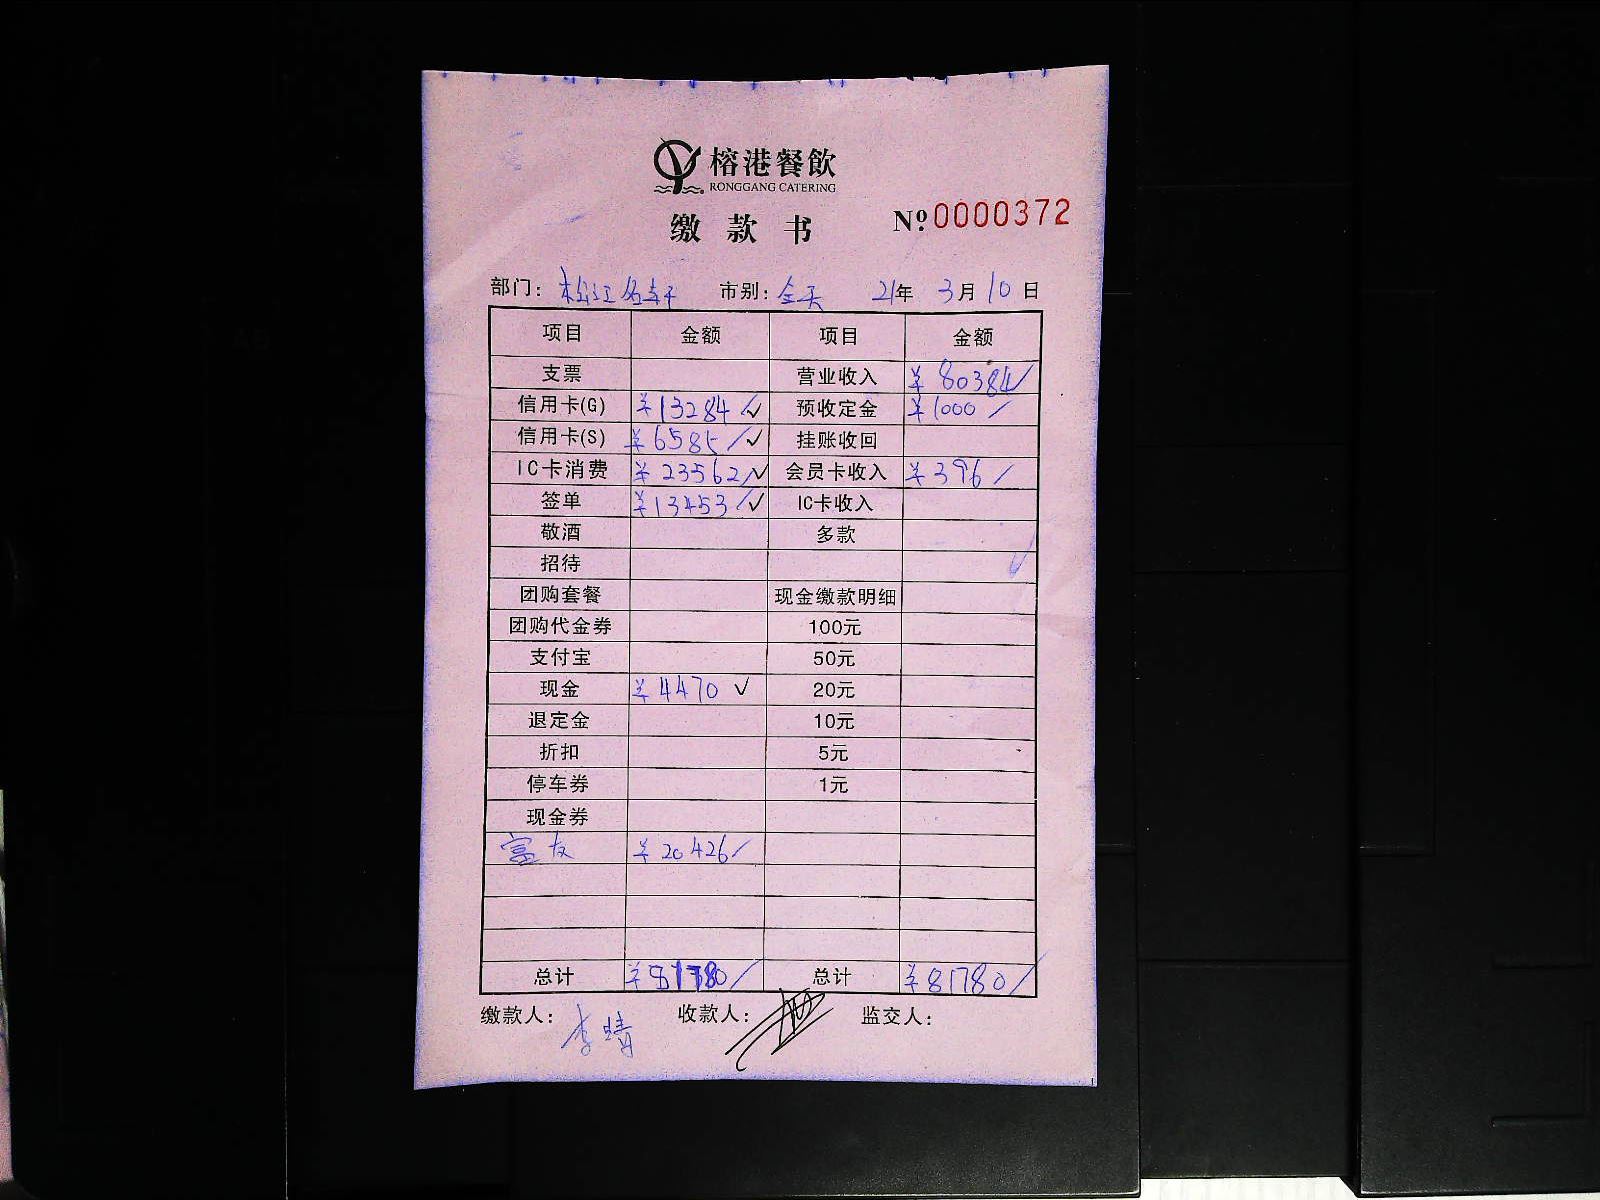 榕港餐飲
RONGGANG CATERING
缴款书 Nº 0000372
部门: 松江名轩 市别: 全天 21年 3月 10日
项目 金额 项目 金额
支票 营业收入 ¥80384
信用卡(G) ¥13284 ✓ 预收定金 ¥1000
信用卡(S) ¥6585 ✓ 挂账收回
IC卡消费 ¥23562 ✓ 会员卡收入 ¥396
签单 ¥13453 ✓ IC卡收入
敬酒 多款
招待
团购套餐 现金缴款明细
团购代金券 100元
支付宝 50元
现金 ¥4470 ✓ 20元
退定金 10元
折扣 5元
停车券 1元
现金券
富友 ¥20426
总计 ¥81780 总计 ¥81780
缴款人: 李晴 收款人: 监交人: